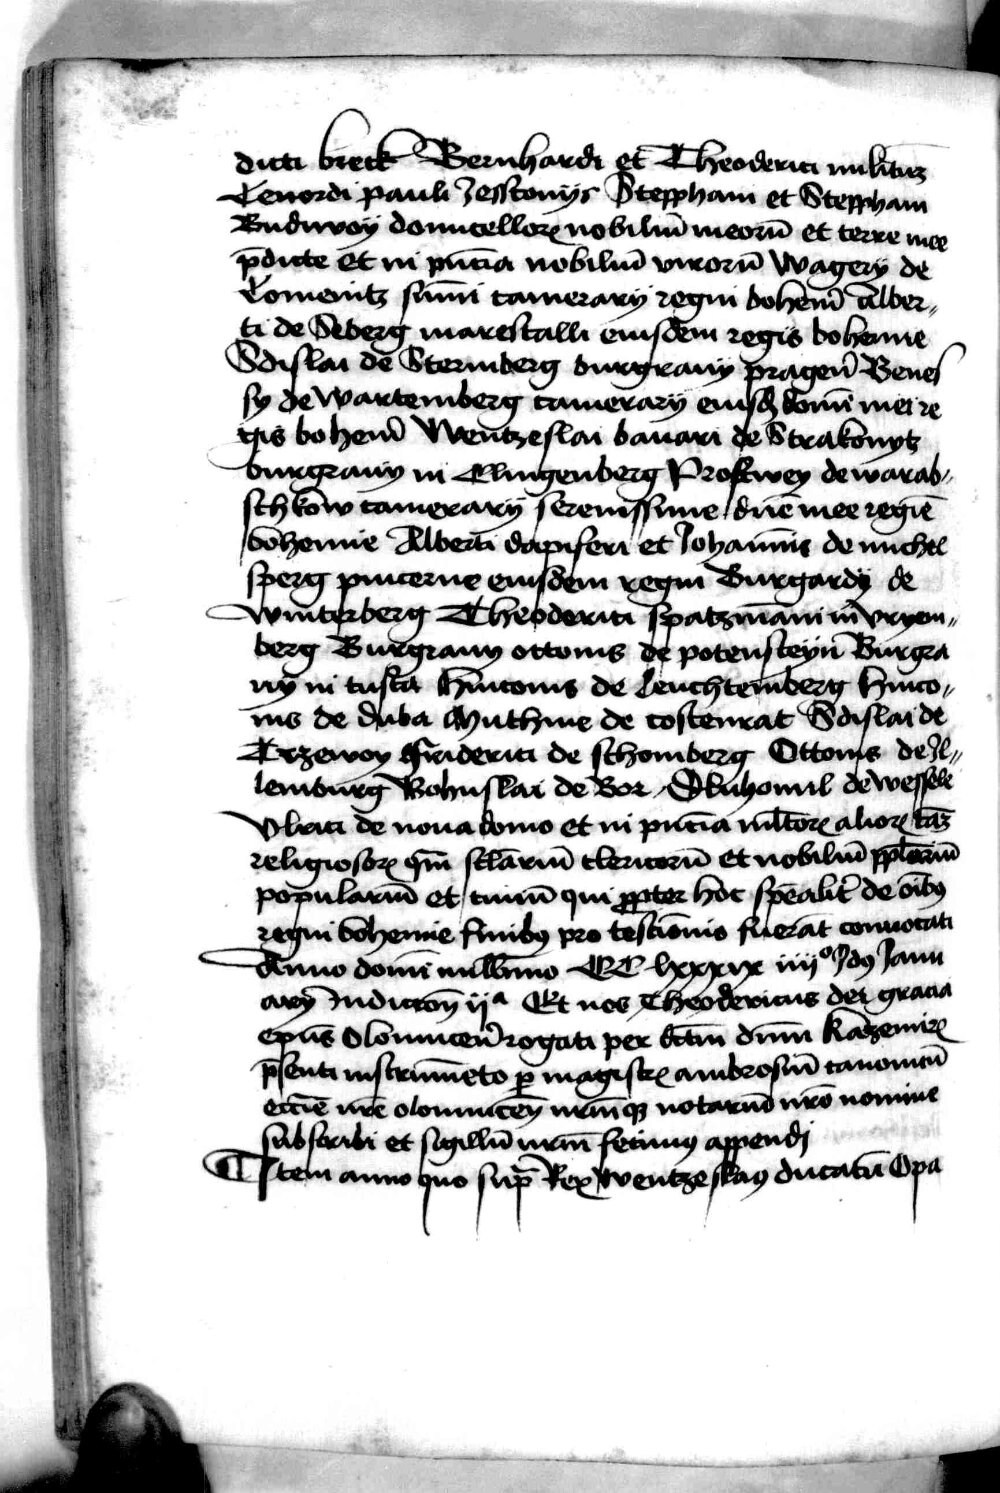 dicti breck Bernhardi et Theoderici militum̄
Lenordi pauli Jesstonijs Stepphani et Stepphani
Budiwoy domicellorꝝ nobiliū meorū et terre mee
p̄dicte Et in pn̄cia nobiliū virorū Wagery de
Lomenitz sūmi camerarij regni bohem̄ Alber⸗
ti de Seberg marescalli eiusdem regis bohemie
Sdislai de Sternberg burgrauij pragen̄ Benes
sy de Wartemberg camerarij eiusdē domī mei re
gis bohem̄ Wentzeslai bauari de Strakonytz
burgrauij in Clingenberg Proswey de warab⸗
schkow camerarij serenissime dn̄e mee regīe
bohemie Alberti dapiferi et Johannis de michel
sperg pincerne eiusdem regni Burgardij de
Winterberg Theoderici spatzmāni in vryem⸗
berg Burgrauij ottonis de potensteyn̄ Burgra
uij in tusta Hinconis de Leuchtemberg hinco⸗
nis de duba Muthine de costenrat Sdislai de
Trzewoy Friderici de schomberg Ottonis de Jl⸗
lemburg Bohuslai de Bor de wessele
Vlrici de noua domo et in pn̄cia mltorꝝ aliorꝝ tā
religiosorꝝ qm̄ sclariū clericorū et nobiliū
popularium et ciuiū qui propter hoc spēalit̄ de oībꝰ
regni bohemie finibꝰ pro testiōnio fuerāt conuocati
Anno domī millīmo CC lxxxix iiijº Jdꝰ Janu
arij Jndictōn̄ ijª Et nos Theodericus dei gracia
ep̄us Olomucen̄ rogati per dictū dn̄m Kazemirꝝ
p̄senti instrumēto ꝑ magistrꝝ ambrosiū canonicū
ecc̄ie nr̄e olomucen̄ nr̄mqꝫ notariū nr̄o nomine
subscribi et sigillū nr̄m fecimꝰ appendi
Jtem anno quo sup̄ Rex Wentzeslaꝰ ducatū Opa